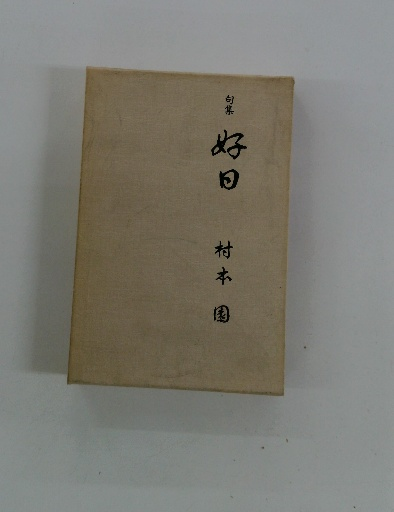 句集
好日
村本園